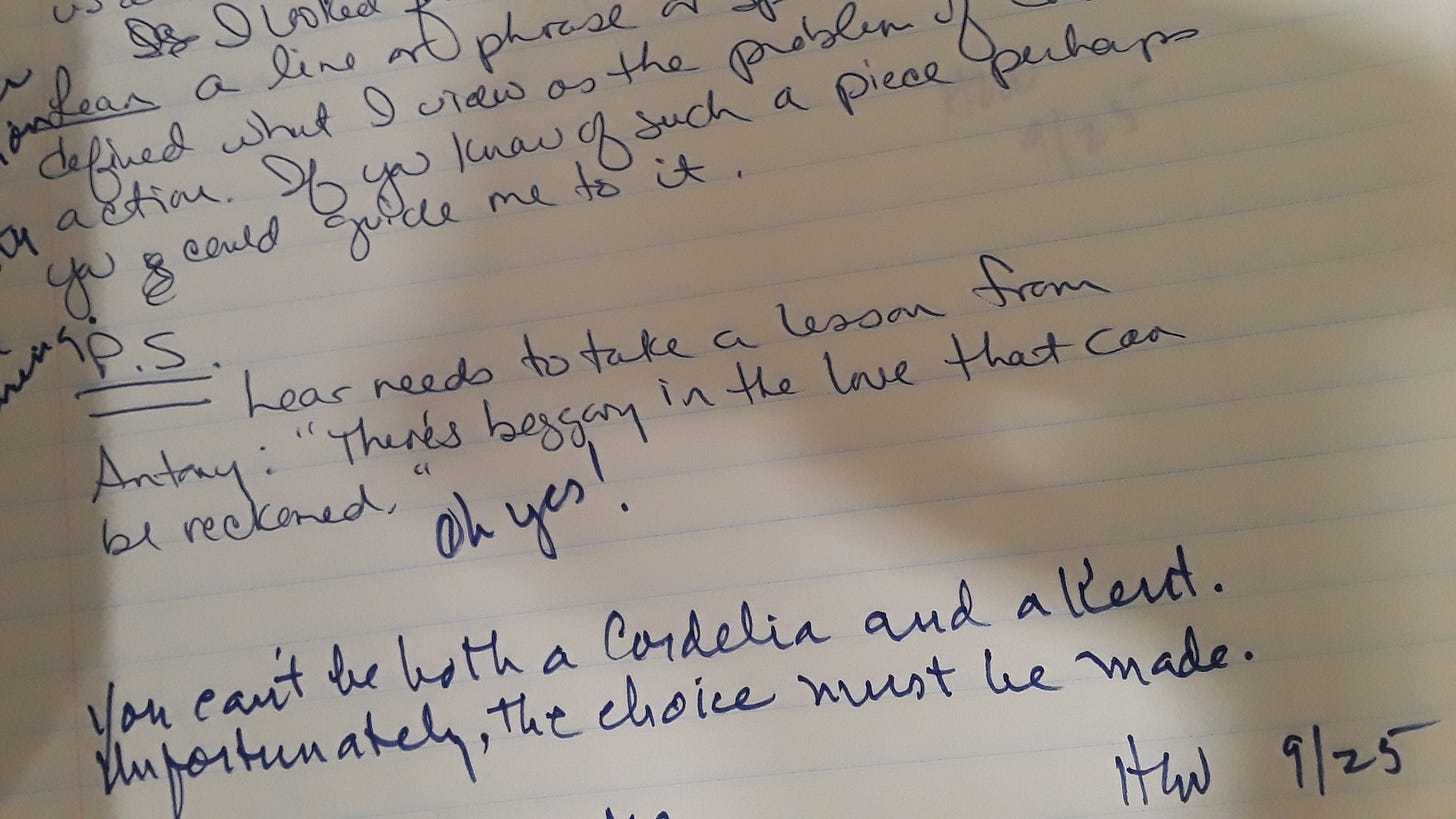 I looked
Lear a line or phrase
defined what I view as the problem of
action. If you know of such a piece perhaps
you could guide me to it.
P.S.
Lear needs to take a lesson from
Antony: "There's beggary in the love that can
be reckoned." Oh yes!
You can't be both a Cordelia and a Kent.
Unfortunately, the choice must be made.
HW 9/25